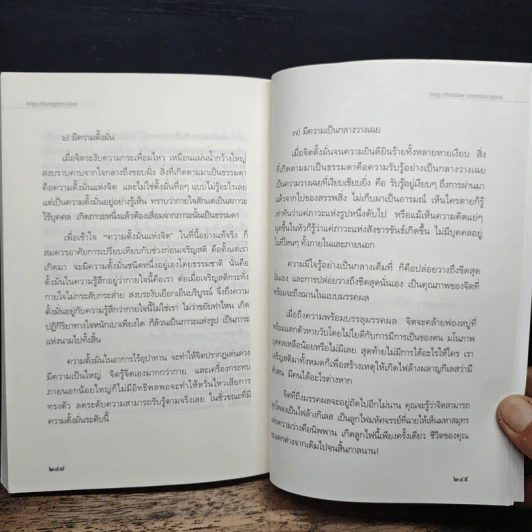 http://dungtrin.com
๖) มีความตั้งมั่น
เมื่อจิตระงับความกระเพื่อมไหว เหมือนแผ่นน้ำกว้างใหญ่
สงบราบคาบจากใจกลางถึงขอบฝั่ง สิ่งที่เกิดตามมาเป็นธรรมดา
คือความตั้งมั่นแห่งจิต และไม่ใช่ตั้งมั่นทื่อๆ แบบไม่รู้อะไรเลย
แต่เป็นความตั้งมั่นอยู่อย่างรู้เห็น ทราบว่ากายใจสักแต่เป็นสภาวะ
ไร้บุคคล เกิดภาวะหนึ่งแล้วต้องเสื่อมจากภาวะนั้นเป็นธรรมดา
เพื่อเข้าใจ “ความตั้งมั่นแห่งจิต” ในที่นี้อย่างแท้จริง ก็
สมควรอาศัยการเปรียบเทียบกับช่วงก่อนเจริญสติ คือตั้งแต่เรา
เกิดมา จะมีความตั้งมั่นชนิดหนึ่งอยู่เองโดยธรรมชาติ นั่นคือ
ตั้งมั่นในความรู้สึกว่ากายใจนี้คือเรา ต่อเมื่อเจริญสติกระทั่ง
กายใจไม่กระดับกระส่าย สงบระงับเยือกเย็นบริบูรณ์ จึงถึงความ
ตั้งมั่นอยู่กับความรู้สึกว่ากายใจนี้ไม่ใช่เรา ไม่ว่าขยับท่าไหน เกิด
ปฏิกิริยาทางใจหนักเบาเพียงใด ก็ล้วนเป็นภาวะแห่งรูป เป็นภาวะ
แห่งนามไปทั้งสิ้น
ความตั้งมั่นในอาการไร้อุปาทาน จะทำให้จิตปรากฏเด่นดวง
มีความเป็นใหญ่ จิตรู้จิตเองมากกว่ากาย และเครื่องกระทบ
ภายนอกน้อยใหญ่ก็ไม่มีอิทธิพลพอจะทำให้หวั่นไหวเสียการ
ทรงตัว ลดระดับความสามารถรับรู้ตามจริงเลย ในชั่วขณะที่มี
ความตั้งมั่นระดับนี้
๒๔๔
http://twitter.com/dungtrin
๗) มีความเป็นกลางวางเฉย
เมื่อจิตตั้งมั่นจนความยินดียินร้ายทั้งหลายหายเงียบ สิ่ง
ที่เกิดตามมาเป็นธรรมดาคือความรับรู้อย่างเป็นกลางวางเฉย
เป็นความวางเฉยที่เงียบเชียบยิ่ง คือ รับรู้อยู่เงียบๆ ถึงการผ่านมา
แล้วจากไปของสรรพสิ่ง ไม่เกี่ยงมาเป็นอารมณ์ เห็นใครตายก็รู้
เท่าทันว่าแค่ภาวะแห่งรูปหนึ่งดับไป หรือแม้เห็นความคิดแย่ๆ
ผุดขึ้นในหัวก็รู้ว่าแค่ภาวะสังขารขันธ์เกิดขึ้น ไม่มีบุคคลอยู่
ในที่ไหนๆ ทั้งภายในและภายนอก
ความมีใจรู้อย่างเป็นกลางเต็มที่ ก็คือปล่อยวางถึงขีดสุด
นั่นเอง และการปล่อยวางถึงขีดสุดนั่นเอง เป็นคุณภาพของจิตที่
พร้อมจะถึงฌานในแบบมรรคผล
เมื่อถึงความพร้อมบรรลุมรรคผล จิตจะคล้ายฟองสบู่ที่
พร้อมแตกตัวหายวับโดยไม่ไยดีกับการมีการเป็นของตน มโนภาพ
บุคคลเหลือน้อยหรือไม่มีเลย สุดท้ายไม่มีการได้อะไรให้ใคร เรา
เจริญสติมาทั้งหมดก็เพื่อสร้างเหตุให้เกิดไฟล้างผลาญกิเลสว่ามี
ตัวตน มีคนได้อะไรต่างหาก
จิตที่ถึงมรรคผลจะอยู่ถัดไปอีกไม่นาน คุณจะรู้ว่าจิตสามารถ
เป็นลูกไฟมหัศจรรย์ที่ฉายให้เห็นมหาสมุทร
แห่งความว่างคือนิพพาน เกิดลูกไฟนี้เพียงครั้งเดียว ชีวิตของคุณ
จะแตกต่างจากเดิมไปจนสิ้นกาลนาน!
๒๔๕